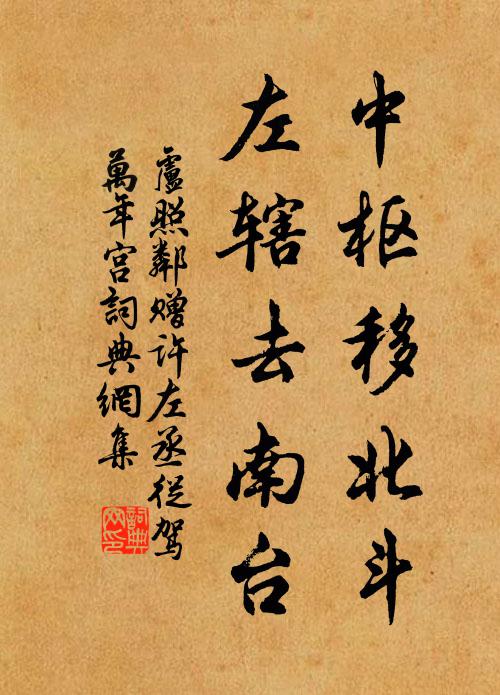 中枢移北斗
左辖去南台
盧照鄰贈許左丞從駕
萬年宮詞典網集
詞典網印